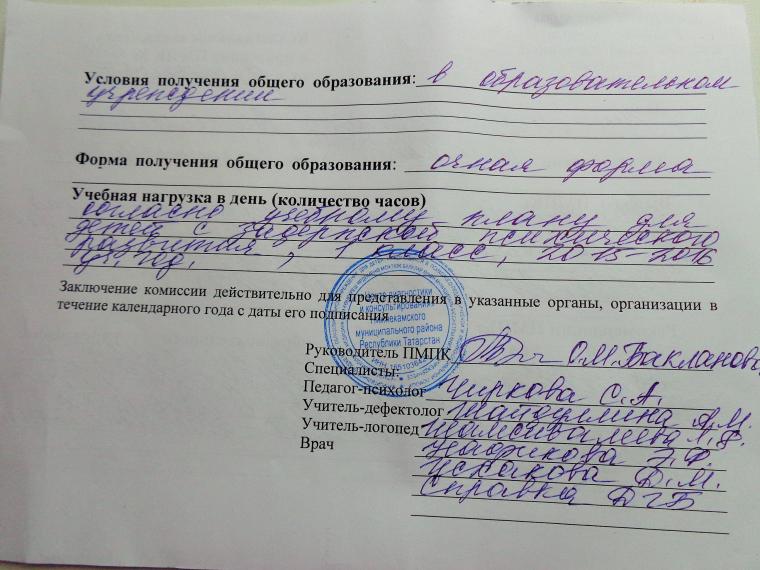 Условия получения общего образования: в образовательном
учреждении
Форма получения общего образования: очная форма
Учебная нагрузка в день (количество часов)
согласно учебному плану для
детей с задержкой психического
развития, 1 класс, 2015-2016
уч. год.
Заключение комиссии действительно для представления в указанные органы, организации в
течение календарного года с даты его подписания
Центр диагностики
и консультирования
Нижнекамского
муниципального района
Республики Татарстан
Руководитель ПМПК О.М.Бакланова
Специалисты:
Педагог-психолог Чиркова С.А.
Учитель-дефектолог
Учитель-логопед
Врач
Исхакова Д.М.
Справка ДГБ